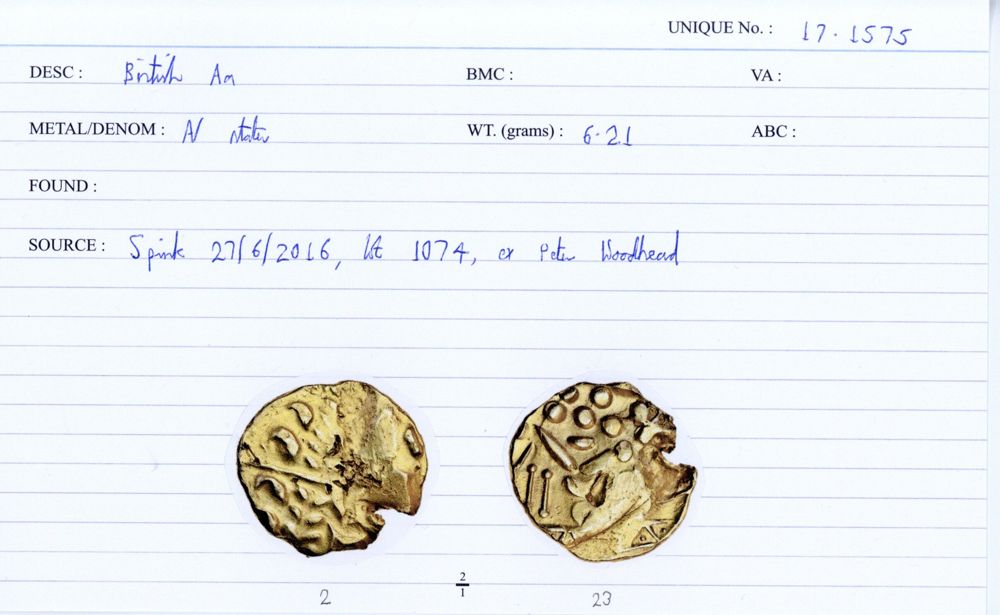 UNIQUE No. : 17.1575
DESC : British Aa BMC : VA :
METAL/DENOM : N stater WT. (grams) : 6.21 ABC :
FOUND :
SOURCE : Spink 27/6/2016, lot 1074, ex Peter Woodhead
2/1
2 23